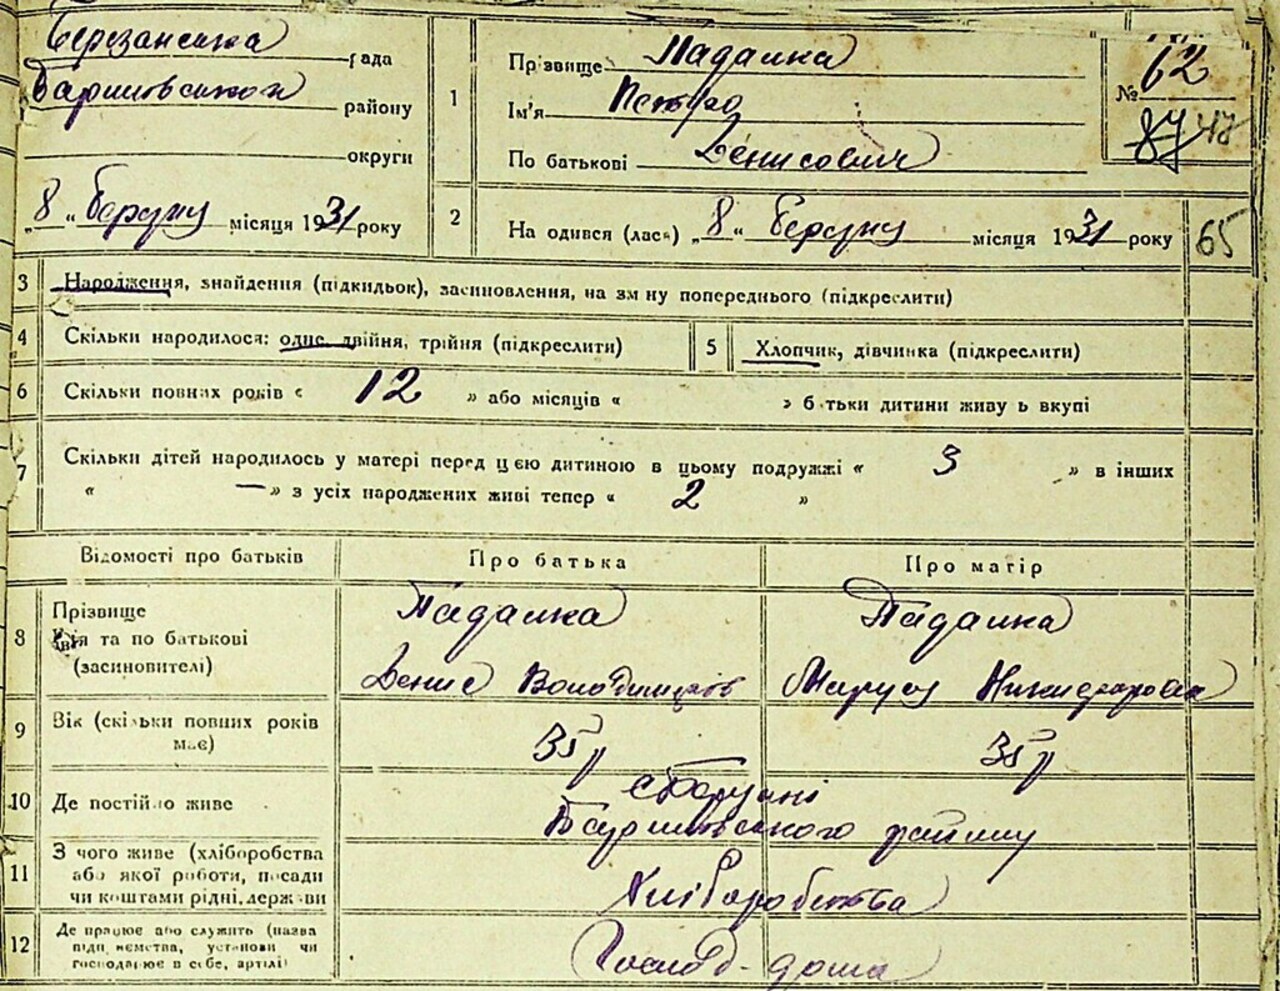 Березанська рада
Баришовського району
округи
„ 8 “ березня місяця 1931 року
1
Прізвище Падалка
Ім'я Петро
По батькові Денисович
№ 62
87 47
2
На одився (лась) „ 8 “ березня місяця 1931 року
65
3 Народження, знайдення (підкидьок), засиновлення, на зм ну попереднього (підкреслити)
4 Скільки народилося: одне, двійня, трійня (підкреслити)
5 Хлопчик, дівчинка (підкреслити)
6 Скільки повних років « 12 » або місяців « » б тьки дитини живу ь вкупі
7 Скільки дітей народилось у матері перед цією дитиною в цьому подружжі « 3 » в інших
« — » з усіх народжених живі тепер « 2 »
Відомості про батьків Про батька Про матір
8 Прізвище
Імя та по батькові
(засиновителі)
Падалка
Денис Володимиров
Падалка
Маруся Никифоровна
9 Вік (скільки повних років
має)
35 р
35 р
10 Де постійно живе
с Березані
Баришовського району
11 З чого живе (хліборобства
або якої роботи, посади
чи коштами рідні, держави
Хліборобства
12 Де працює або служить (назва
підприємства, установи чи
господарює в себе, артілі)
Господ. дома